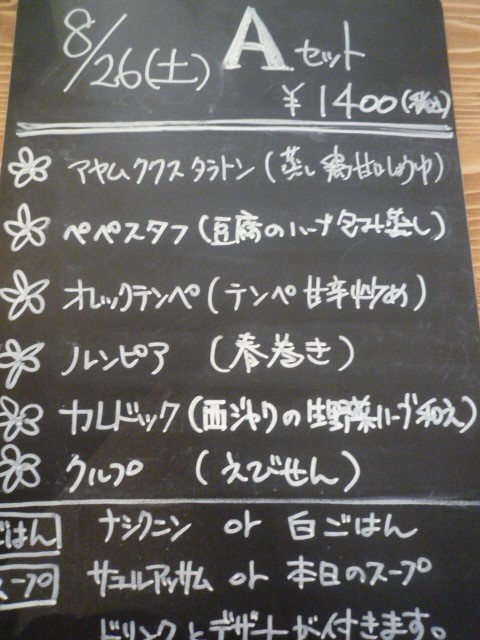 8/26(土) Aセット
¥1400(税込)
アヤムククスタラトン(蒸し鶏甘口しょうゆ)
ペペスタフ(豆腐のハーブ包み蒸し)
オレックテンペ(テンペ甘辛炒め)
ルンピア (春巻き)
カレドック(西ジャワの生野菜ハーブ和え)
クルプ (えびせん)
ごはん ナシクニン or 白ごはん
スープ サユルアッサム or 本日のスープ
ドリンクとデザートが付きます。